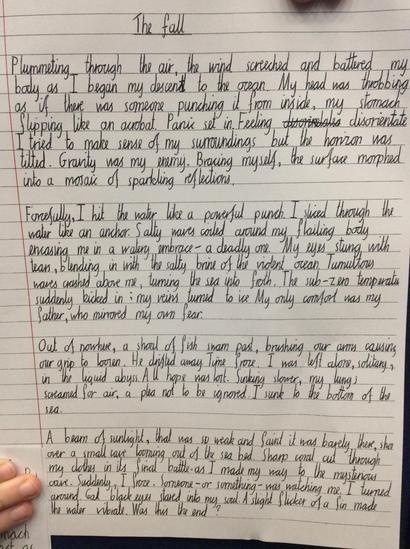 The fall
Plummeting through the air, the wind screeched and battered my
body as I began my descent to the ocean. My head was throbbing
as if there was someone punching it from inside, my stomach
flipping like an acrobat. Panic set in. Feeling disorientate
I tried to make sense of my surroundings but the horizon was
tilted. Gravity was my enemy. Bracing myself, the surface morphed
into a mosaic of sparkling reflections.
Forcefully, I hit the water like a powerful punch. I sliced through the
water like an anchor. Salty waves coiled around my flailing body
encasing me in a watery embrace - a deadly one. My eyes stung with
tears, blending in with the salty brine of the violent ocean. Tumultous
waves crashed above me, turning the sea into froth. The sub-zero temperatu
suddenly kicked in; my veins turned to ice. My only comfort was my
father, who mirrored my own fear.
Out of nowhere, a shoal of fish swam past, brushing our arms causing
our grip to loosen. He drifted away. Time froze. I was left alone, solitary,
in the liquid abyss. All hope was lost. Sinking slower, my lungs
screamed for air, a plea not to be ignored. I sunk to the bottom of the
sea.
A beam of sunlight, that was so weak and faint it was barely there, sho
over a small cave looming out of the sea bed. Sharp coral cut through
my clothes in its final battle as I made my way to the mysterious
cave. Suddenly, I froze. Someone - or something - was watching me. I turned
around. black eyes stared into my soul. A slight flicker of a fin made
the water vibrate. Was this the end?
mach